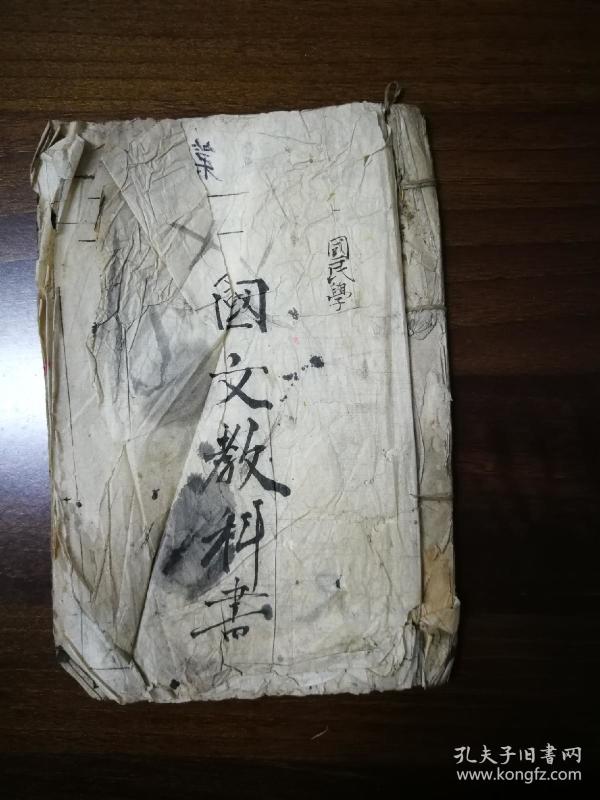 國民學
國文教科書
第
孔夫子旧书网
www.kongfz.com